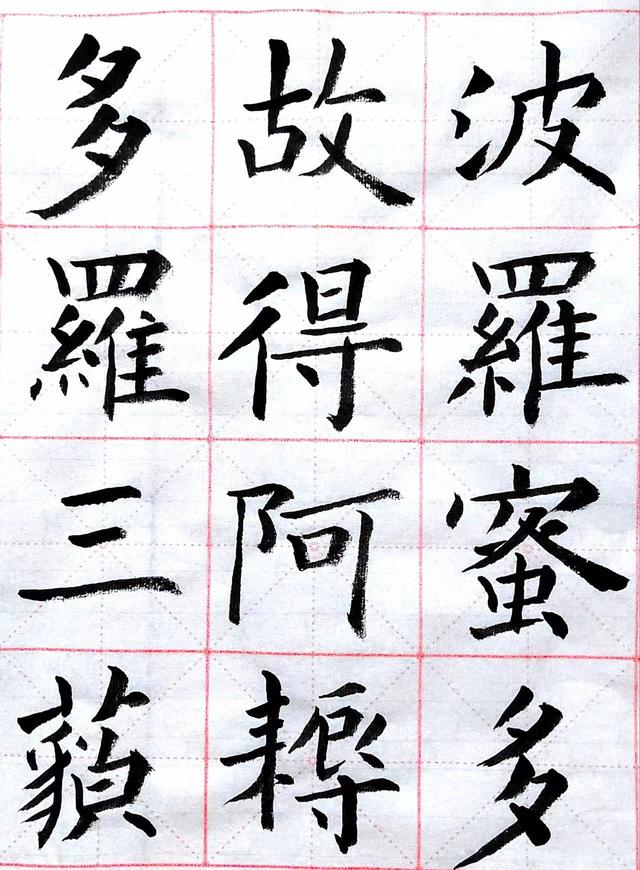 波羅蜜多
故得阿耨
多羅三藐